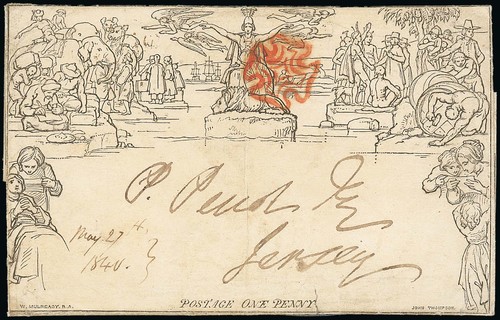 P. Perrot Esq
Jersey
May 27th
1840.
W. MULREADY, R.A.
POSTAGE ONE PENNY.
JOHN THOMPSON.